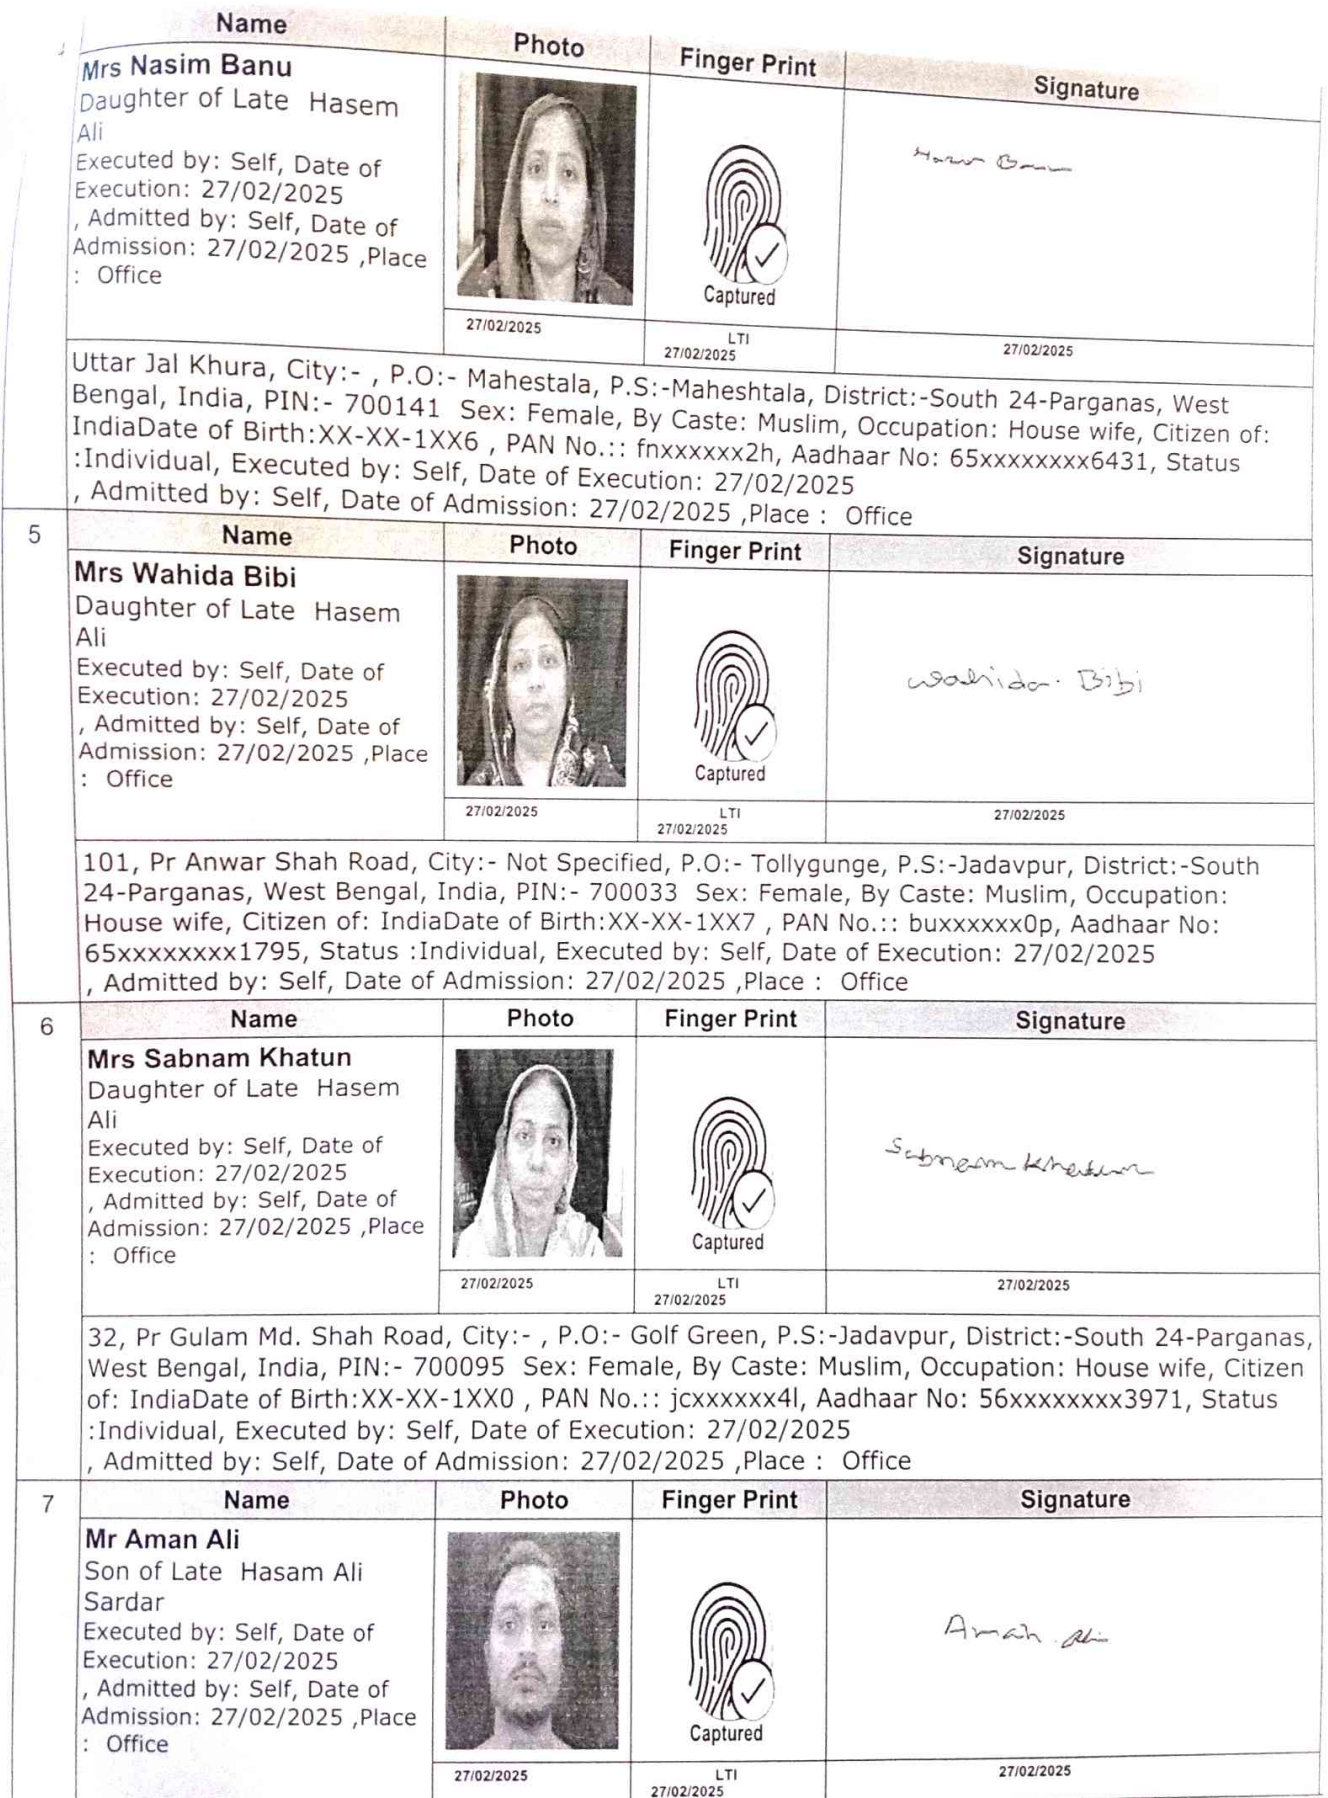 Name Photo Finger Print Signature
Mrs Nasim Banu
Daughter of Late Hasem
Ali
Executed by: Self, Date of
Execution: 27/02/2025
, Admitted by: Self, Date of
Admission: 27/02/2025 ,Place
: Office
Captured
27/02/2025
LTI
27/02/2025
27/02/2025
Uttar Jal Khura, City:- , P.O:- Mahestala, P.S:-Maheshtala, District:-South 24-Parganas, West
Bengal, India, PIN:- 700141 Sex: Female, By Caste: Muslim, Occupation: House wife, Citizen of:
IndiaDate of Birth:XX-XX-1XX6 , PAN No.:: fnxxxxxx2h, Aadhaar No: 65xxxxxxxx6431, Status
:Individual, Executed by: Self, Date of Execution: 27/02/2025
, Admitted by: Self, Date of Admission: 27/02/2025 ,Place : Office
5
Name Photo Finger Print Signature
Mrs Wahida Bibi
Daughter of Late Hasem
Ali
Executed by: Self, Date of
Execution: 27/02/2025
, Admitted by: Self, Date of
Admission: 27/02/2025 ,Place
: Office
Captured
Wahida. Bibi
27/02/2025
LTI
27/02/2025
27/02/2025
101, Pr Anwar Shah Road, City:- Not Specified, P.O:- Tollygunge, P.S:-Jadavpur, District:-South
24-Parganas, West Bengal, India, PIN:- 700033 Sex: Female, By Caste: Muslim, Occupation:
House wife, Citizen of: IndiaDate of Birth:XX-XX-1XX7 , PAN No.:: buxxxxxx0p, Aadhaar No:
65xxxxxxxx1795, Status :Individual, Executed by: Self, Date of Execution: 27/02/2025
, Admitted by: Self, Date of Admission: 27/02/2025 ,Place : Office
6
Name Photo Finger Print Signature
Mrs Sabnam Khatun
Daughter of Late Hasem
Ali
Executed by: Self, Date of
Execution: 27/02/2025
, Admitted by: Self, Date of
Admission: 27/02/2025 ,Place
: Office
Captured
Sabnam Khatun
27/02/2025
LTI
27/02/2025
27/02/2025
32, Pr Gulam Md. Shah Road, City:- , P.O:- Golf Green, P.S:-Jadavpur, District:-South 24-Parganas,
West Bengal, India, PIN:- 700095 Sex: Female, By Caste: Muslim, Occupation: House wife, Citizen
of: IndiaDate of Birth:XX-XX-1XX0 , PAN No.:: jcxxxxxx4l, Aadhaar No: 56xxxxxxxx3971, Status
:Individual, Executed by: Self, Date of Execution: 27/02/2025
, Admitted by: Self, Date of Admission: 27/02/2025 ,Place : Office
7
Name Photo Finger Print Signature
Mr Aman Ali
Son of Late Hasam Ali
Sardar
Executed by: Self, Date of
Execution: 27/02/2025
, Admitted by: Self, Date of
Admission: 27/02/2025 ,Place
: Office
Captured
Aman Ali
27/02/2025
LTI
27/02/2025
27/02/2025